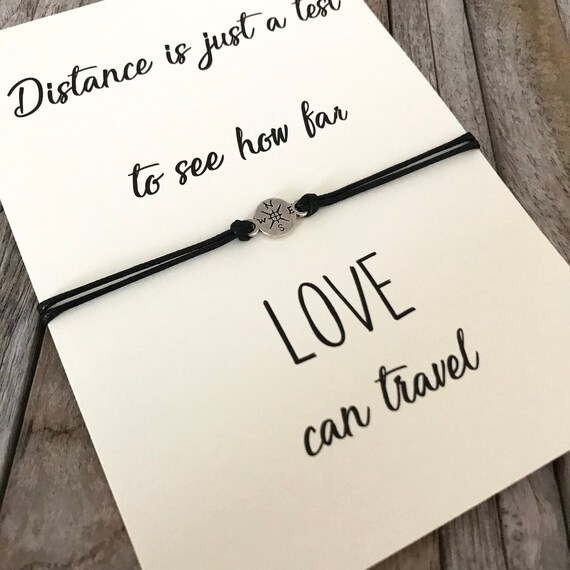 Distance is just a test
to see how far
N
W E
S
LOVE
can travel